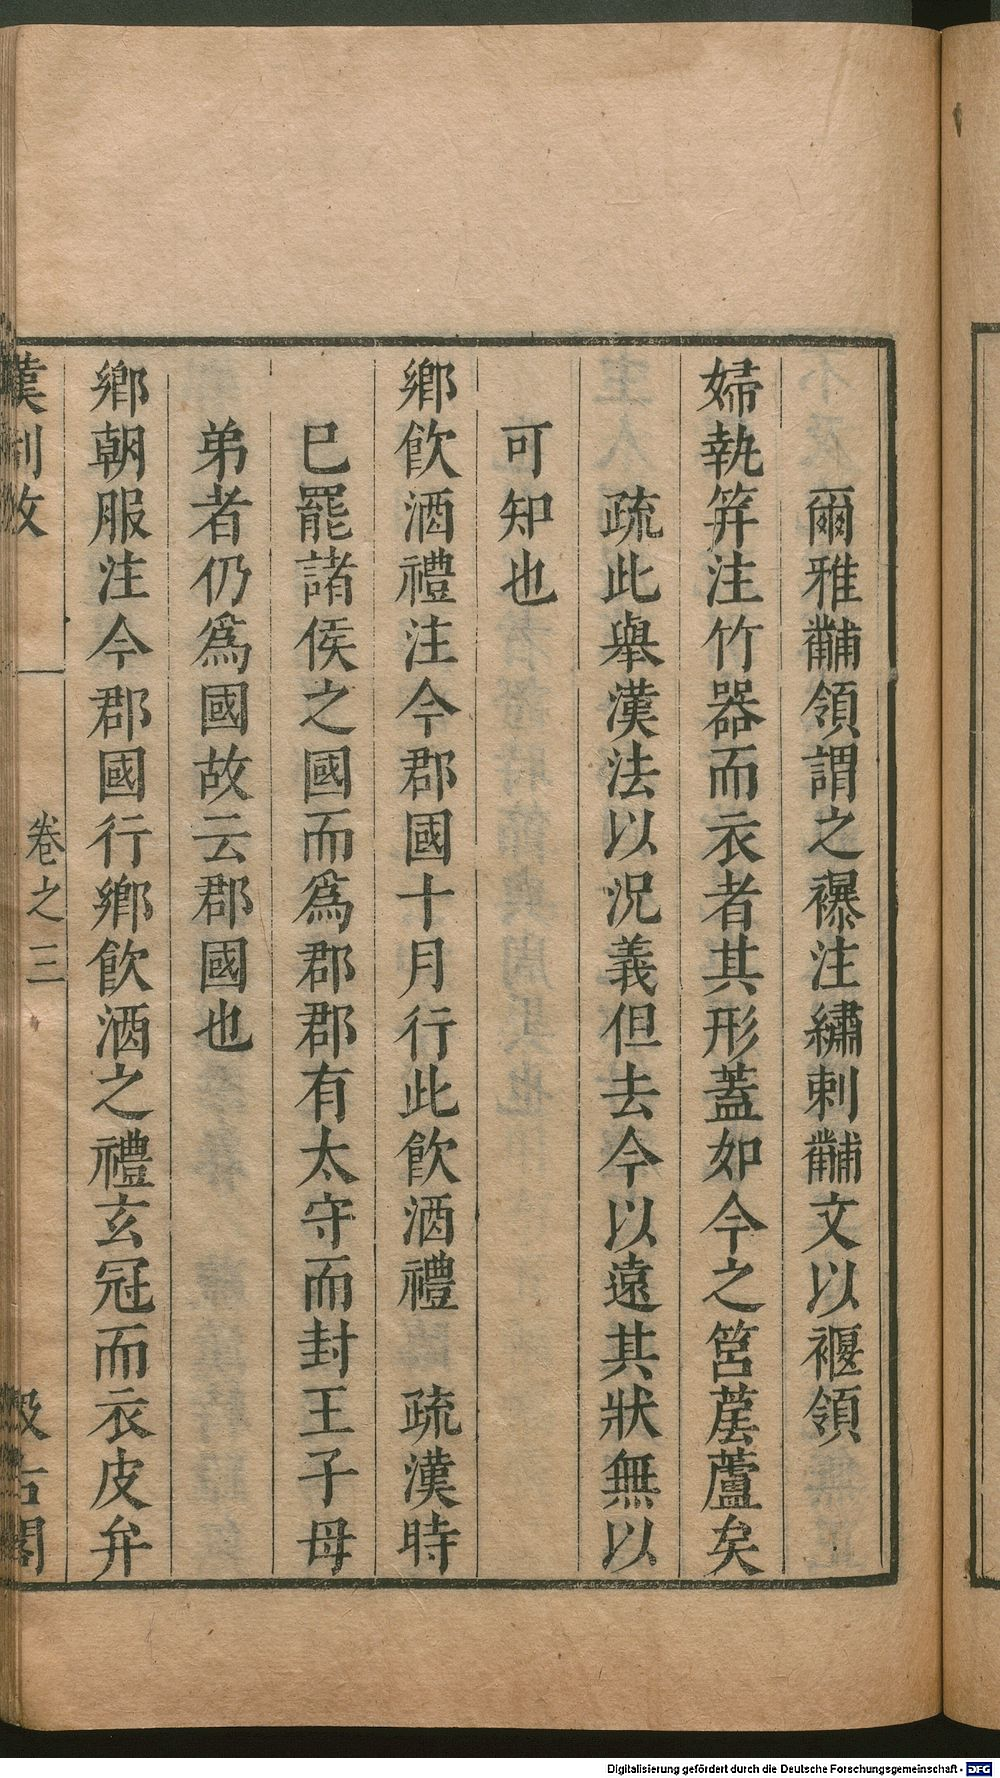 爾雅黼領謂之襮注繡刺黼文以褗領
婦執筓注竹器而衣者其形蓋如今之筥𥬔蘆矣
疏此舉漢法以況義但去今以遠其狀無以
可知也
鄉飲酒禮注今郡國十月行此飲酒禮　疏漢時
已罷諸侯之國而爲郡郡有太守而封王子母
弟者仍爲國故云郡國也
鄉朝服注今郡國行鄉飲酒之禮玄冠而衣皮弁
漢制攷　卷之三　汲古閣
Digitalisierung gefördert durch die Deutsche Forschungsgemeinschaft - DFG